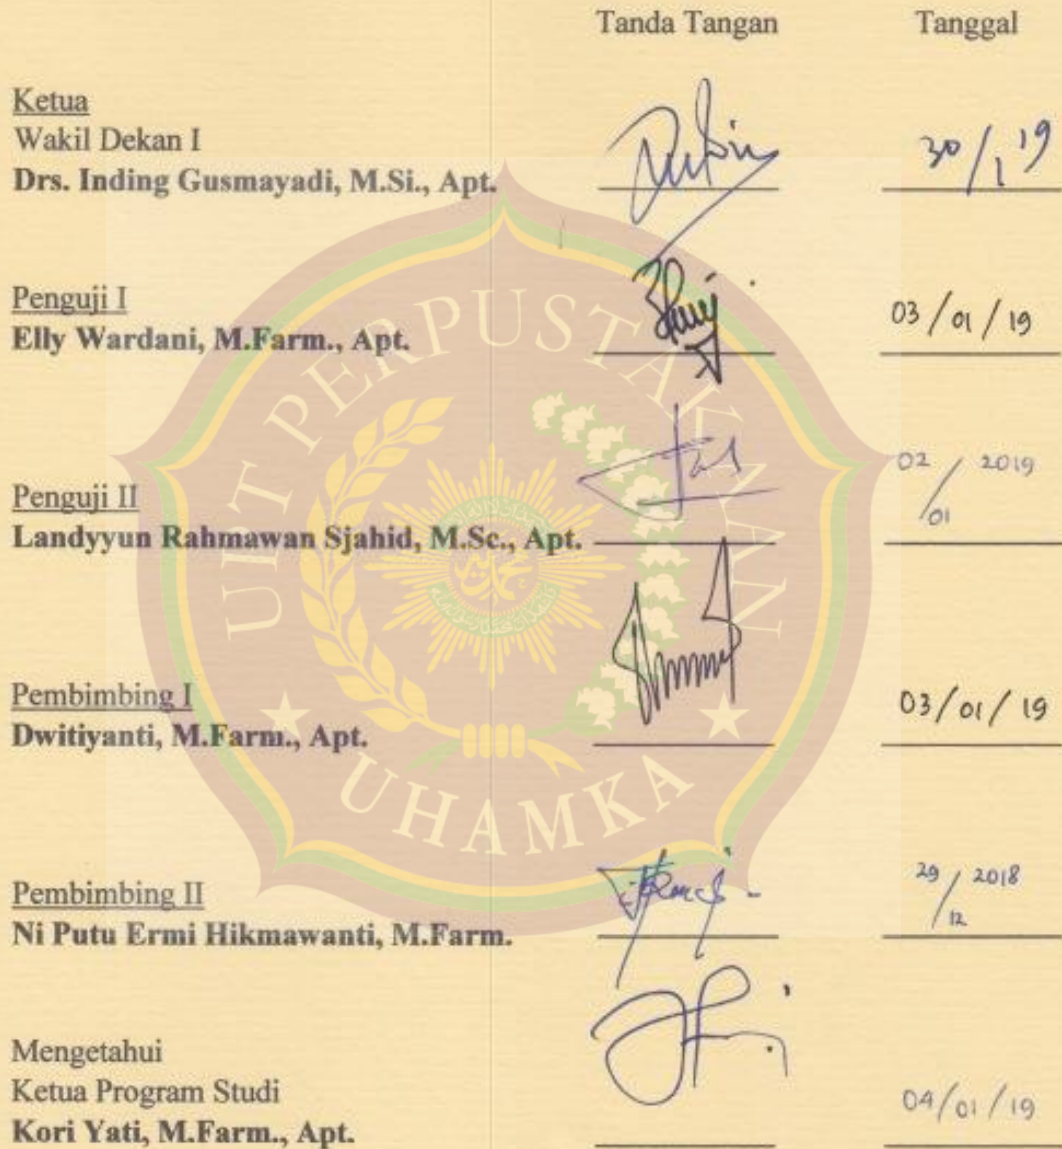 Tanda Tangan Tanggal
Ketua
Wakil Dekan I
Drs. Inding Gusmayadi, M.Si., Apt. 30/1 19
Penguji I
Elly Wardani, M.Farm., Apt. 03/01/19
Penguji II
Landyyun Rahmawan Sjahid, M.Sc., Apt. 02/01 2019
Pembimbing I
Dwitiyanti, M.Farm., Apt. 03/01/19
Pembimbing II
Ni Putu Ermi Hikmawanti, M.Farm. 29/12 2018
Mengetahui
Ketua Program Studi
Kori Yati, M.Farm., Apt. 04/01/19
UPT PERPUSTAKAAN
UHAMKA